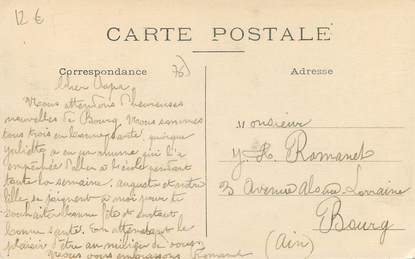 12 €
CARTE POSTALE
Correspondance
75)
Adresse
Cher Papa
Nous attendons d'heureuses
nouvelles de Bourg. Nous sommes
tous trois en bonne santé, quoique
Juliette a eu un rhume qui l'a
empêchée d'aller à l'école pendant
toute la semaine. Auguste et notre
fille se joignent à moi pour te
souhaiter bonne fête et surtout
bonne santé. En attendant le
plaisir d'être au milieu de vous
Nous vous embrassons Romanet
Monsieur
J. H. Romanet
3 Avenue Alsace Lorraine
Bourg
(Ain)